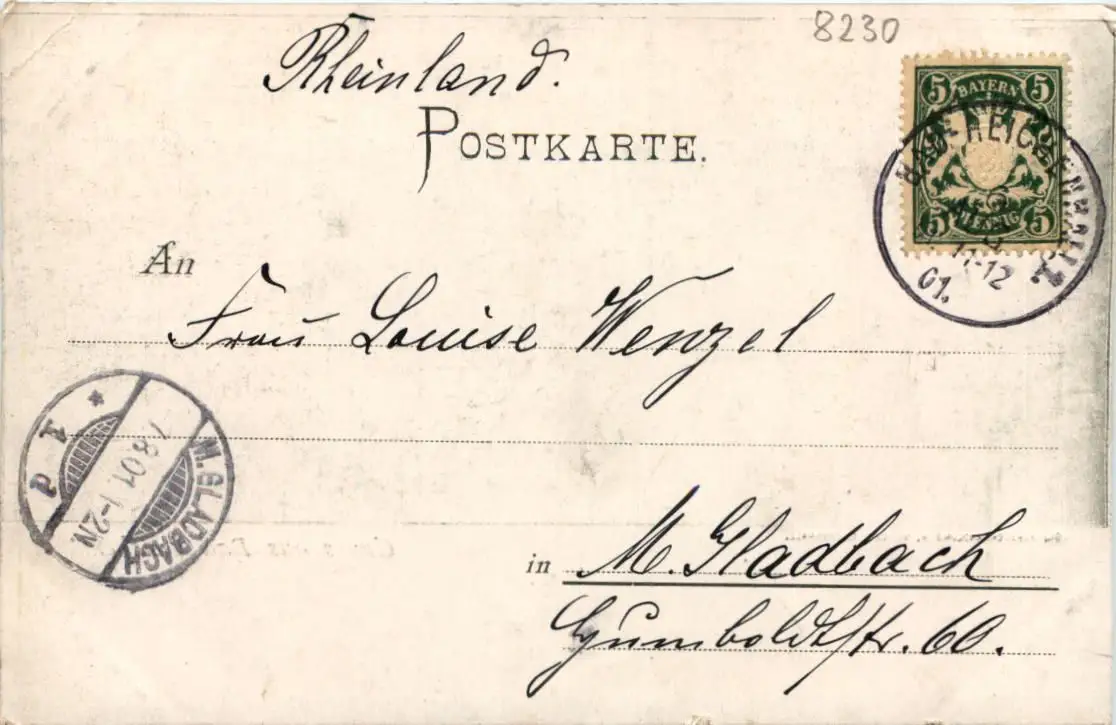 8230
Rheinland.
POSTKARTE.
5 BAYERN 5
5 PFENNIG 5
BAD-REICHENHALL 2.
11-12
01.
An
Frau Louise Wenzel
M. GLADBACH
7.8.01. 1-2N.
in M. Gladbach
Humboldtstr. 60.